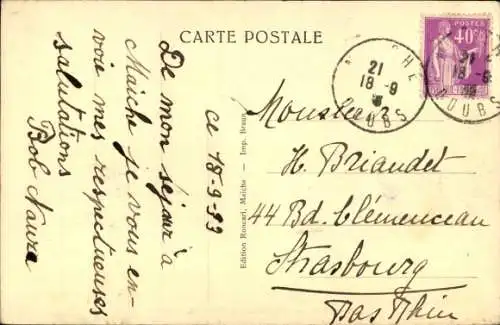 CARTE POSTALE
De mon séjour à
Maiche je vous en-
voie mes respectueuses
salutations
Bob
ce 18-9-33
Edition Ronçari, Maîche — Imp. Braun
40c
MAICHE
21
18 -9
DOUBS
21
18 -9
DOUBS
Monsieur
H. Briandet
44 Bd. Clémenceau
Strasbourg
Bas Rhin